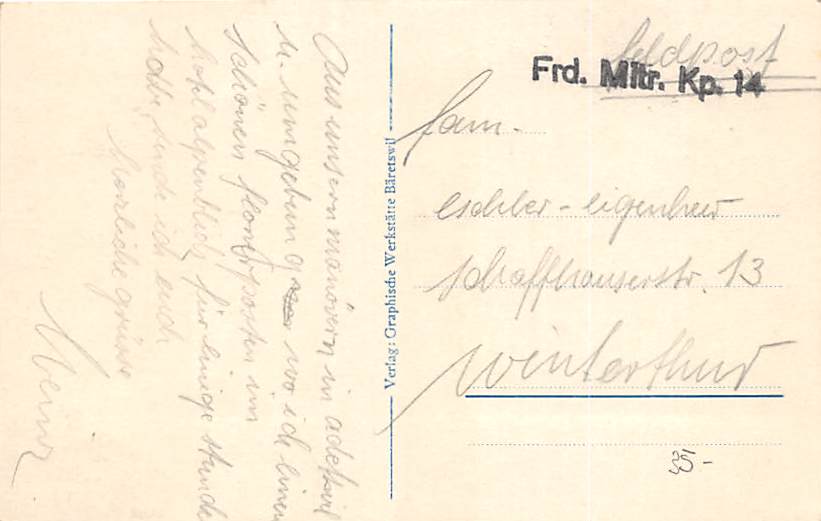 Aus unsern manövern in adetswil
u. umgebung wo ich einen
schönen posten im
für einige stunde
habe, sende ich euch
herzliche grüsse
Verlag: Graphische Werkstätte Bäretswil
Feldpost
Frd. Mitr. Kp. 14
fam.
eschler-eigenheer
schaffhauserstr. 13
winterthur